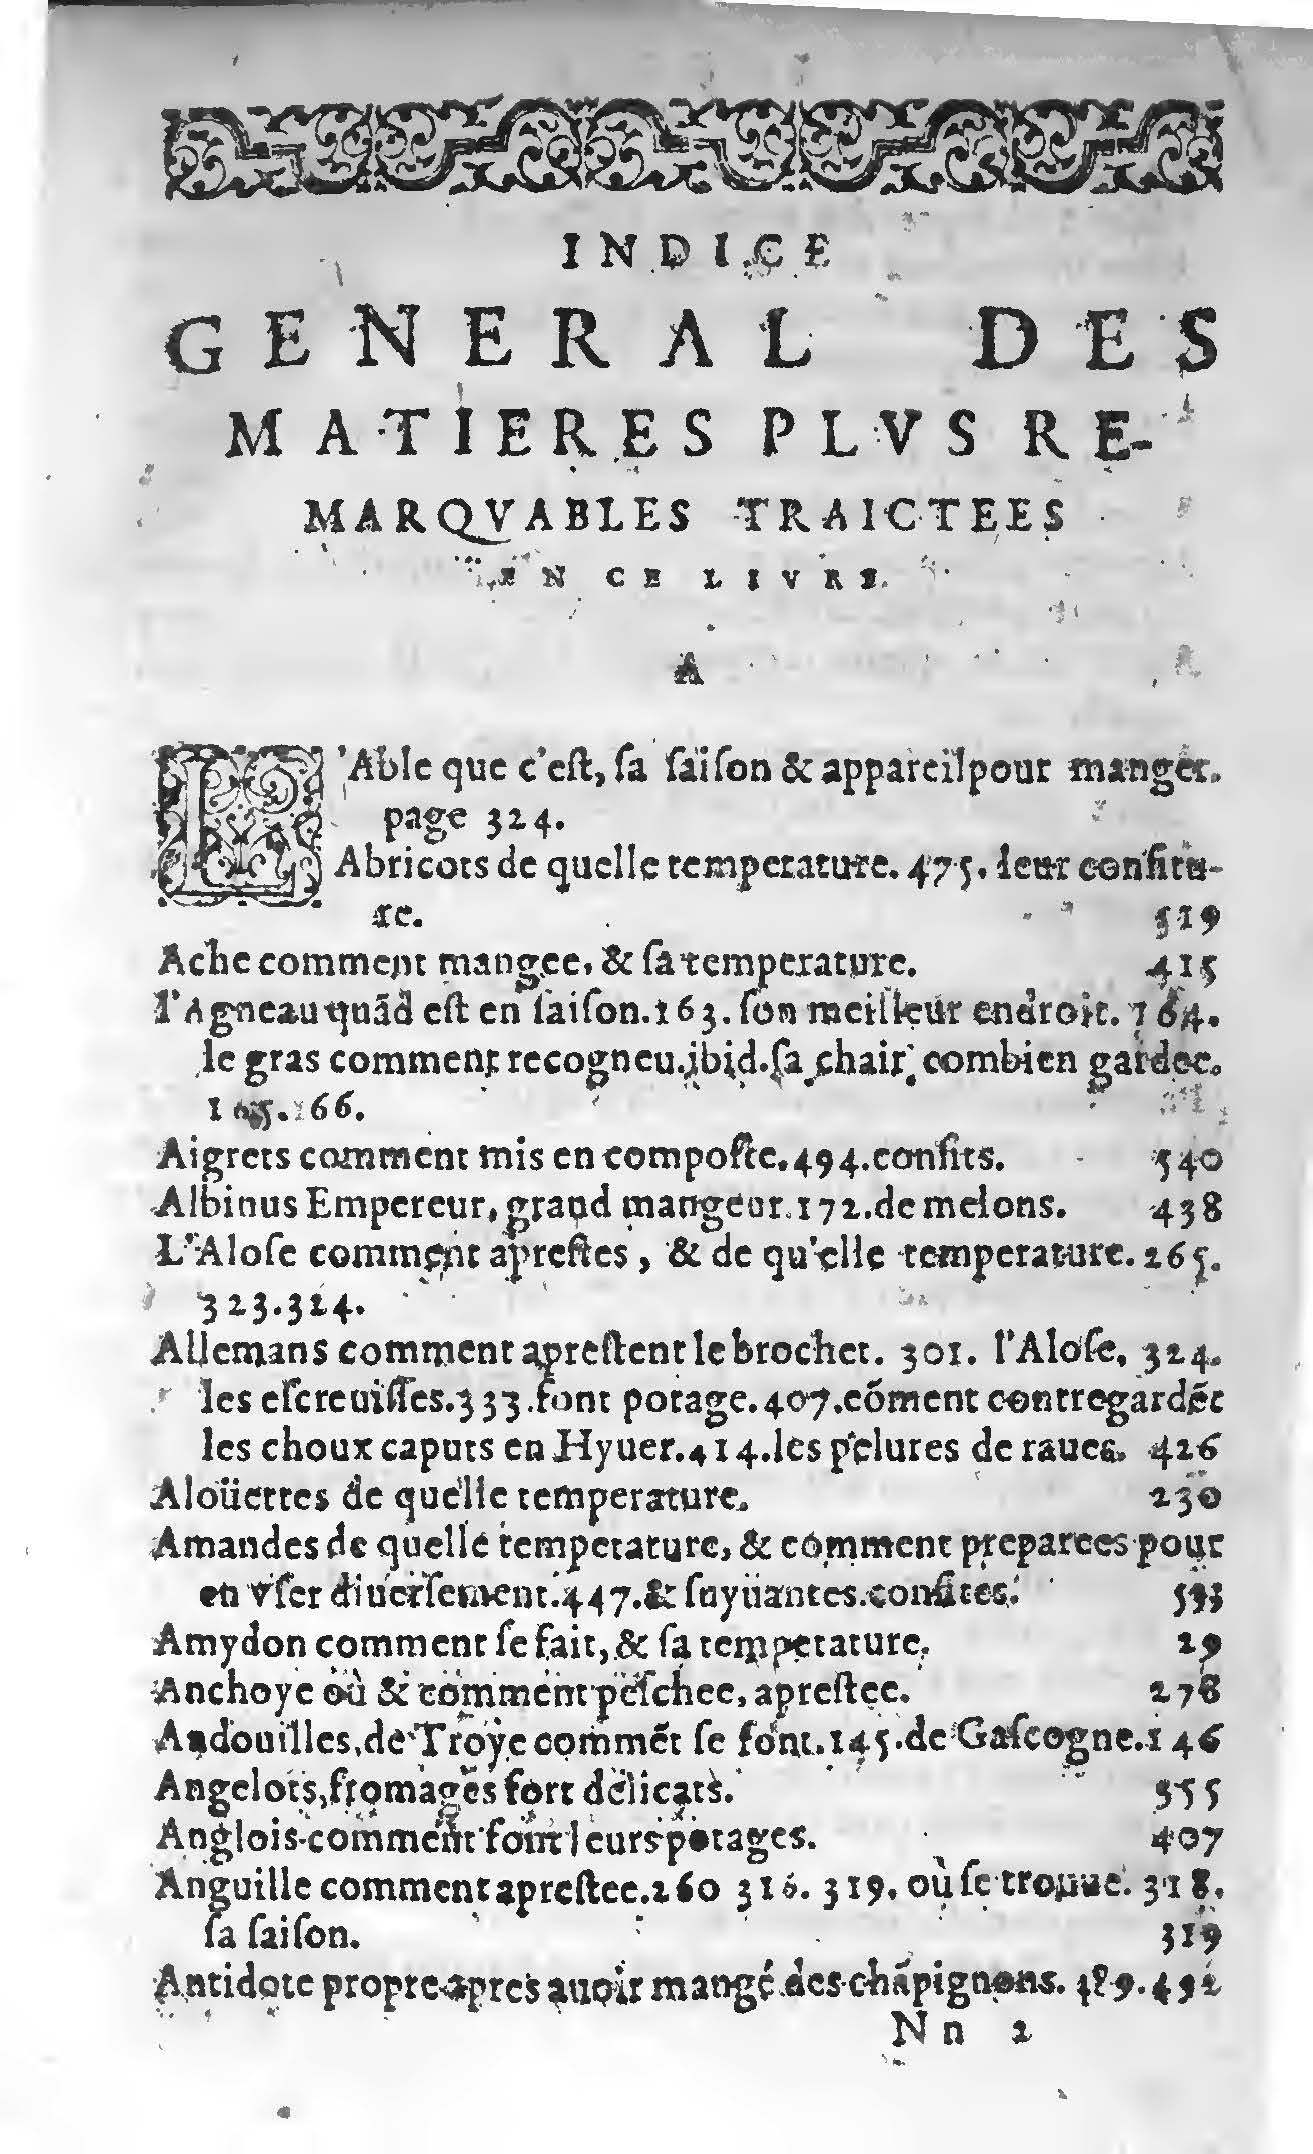 INDICE
GENERAL DES
MATIERES PLVS RE-
MARQVABLES TRAICTEES
EN CE LIVRE.
A
L'Able que c'eſt, ſa ſaiſon & appareil pour manger.
page 324.
Abricots de quelle temperature. 475. leur confitu-
re. 519
Ache comment mangee, & ſa temperature. 415
l'Agneau quãd eſt en ſaiſon. 163. ſon meilleur endroit. 164.
le gras comment recogneu. ibid. ſa chair combien gardee.
165. 166.
Aigrets comment mis en compoſte. 494. confits. 540
Albinus Empereur, grand mangeur. 172. de melons. 438
L'Aloſe comment apreſtes, & de qu'elle temperature. 265.
323. 324.
Allemans comment apreſtent le brochet. 301. l'Aloſe, 324.
les eſcreuiſſes. 333. font potage. 407. cõment contregardẽt
les choux caputs en Hyuer. 414. les pelures de raues. 426
Aloüettes de quelle temperature. 230
Amandes de quelle temperature, & comment preparees pour
en vſer diuerſement. 447. & ſuyuantes. confites. 533
Amydon comment ſe fait, & ſa temperature. 29
Anchoye où & comment peſchee, apreſtee. 278
Andouilles de Troye commẽt ſe font. 145. de Gaſcogne. 146
Angelots, fromages fort delicats. 355
Anglois comment font leurs potages. 407
Anguille comment apreſtee. 260 316. 319. où ſe trouue. 318.
ſa ſaiſon. 319
Antidote propre apres auoir mangé des chãpignons. 489. 492
Nn 2